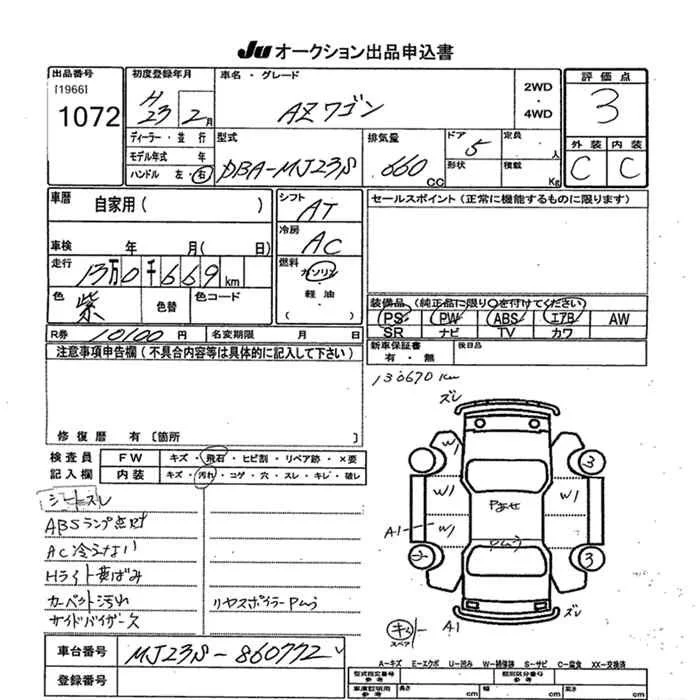 Ju オークション出品申込書
出品番号
[1966]
1072
初度登録年月
H23 2月
ディーラー・並行
モデル年式 年
ハンドル 左・右
車名・グレード
AZワゴン
2WD
・
4WD
型式
DBA-MJ23S
排気量
660 CC
ドア 5
形状
定員 人
積載 Kg
評価点
3
外装 内装
C C
車歴
自家用( )
車検 年 月( 日)
走行
13万0千669km
色
紫
色替
色コード
R券 10100円
名変期限 月 日
シフト
AT
冷房
AC
燃料
ガソリン
軽油
( )
セールスポイント(正常に機能するものに限ります)
装備品(純正品に限り○を付けてください)
PS PW ABS エアB AW
SR ナビ TV カワ
新車保証書
有・無
後日品
注意事項申告欄(不具合内容等は具体的に記入して下さい)
修復歴 有〔箇所 〕
130670km
検査員
記入欄
FW キズ・飛石・ヒビ割・リペア跡・×要
内装 キズ・汚れ・コゲ・穴・スレ・キレ・破レ
シートスレ
ABSランプ点灯
AC冷えない
Hライト黄ばみ
カーペット汚れ
サイドバイザーズ
リヤスポイラーPムラ
ズレ
W1
3
W1
W1
Pあせ
A1
W1
Pムラ
3
ズレ
スペア
A1
車台番号
MJ23S-860772
登録番号
A-キズ E-エクボ U-凹み W-補修跡 S-サビ C-腐食 XX-交換済
型式指定番号
参考
類別区分番号
参考
車庫証明用
参考
長さ cm
幅 cm
高さ cm